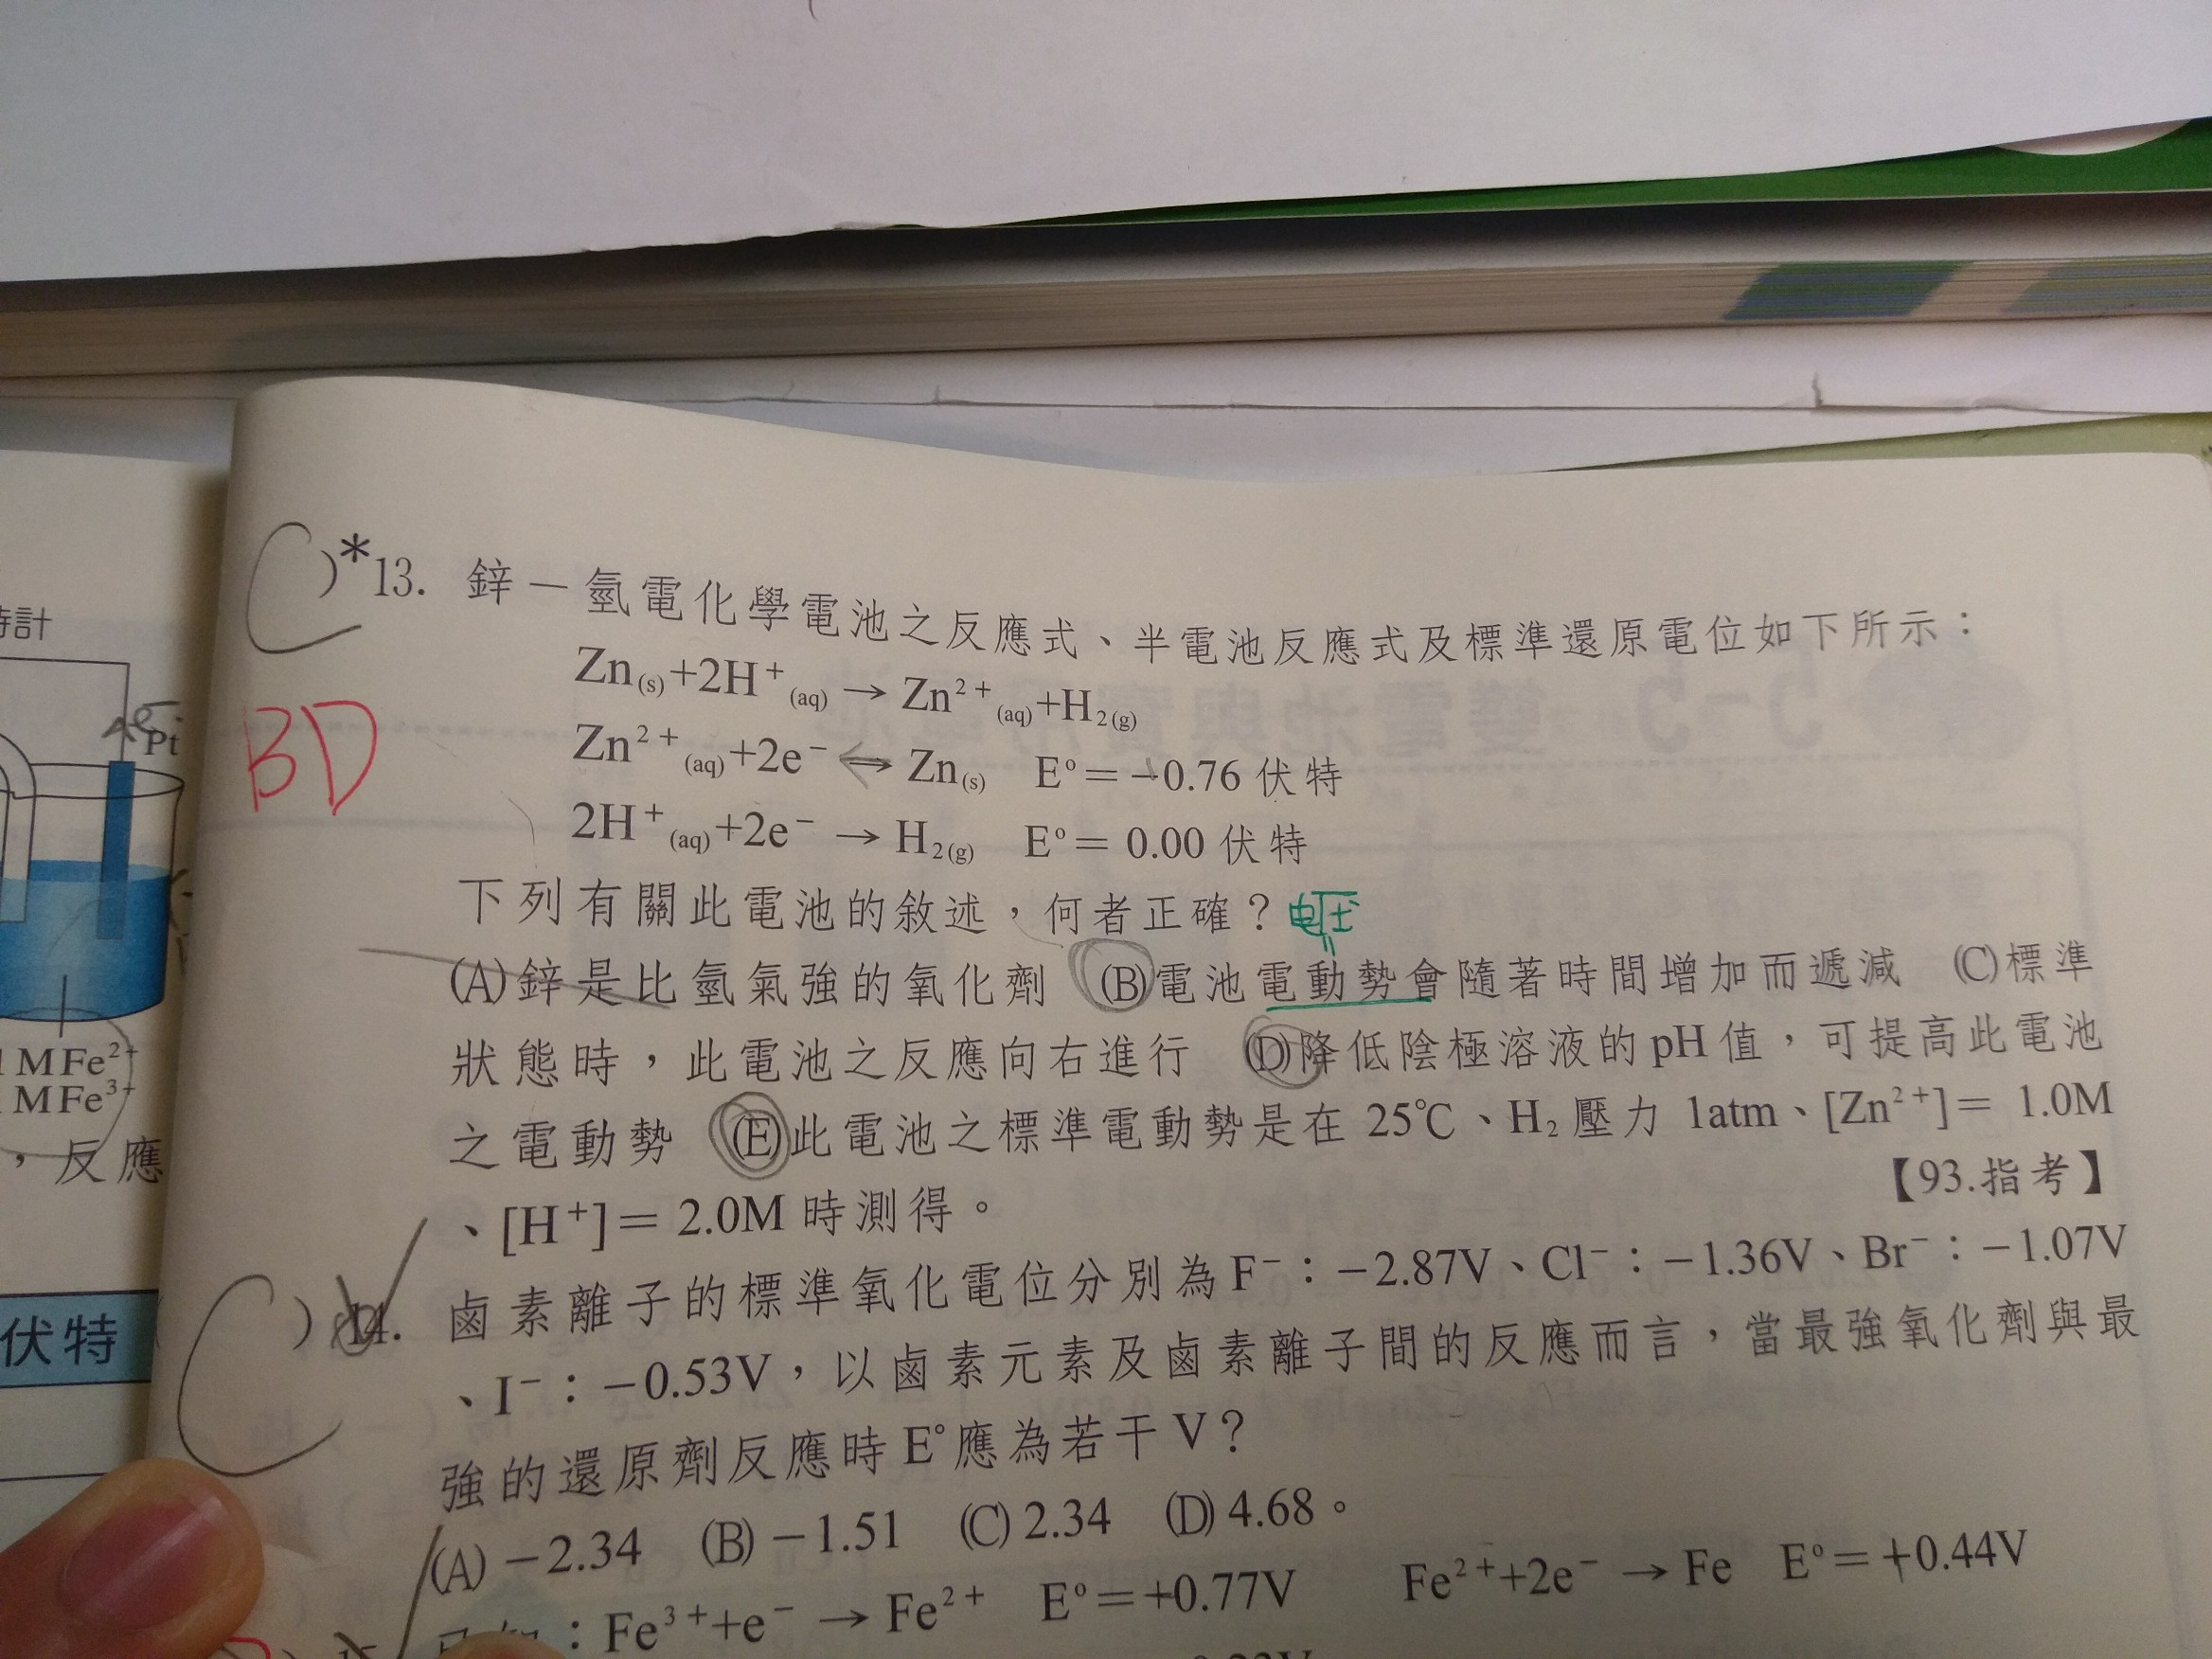 C )*13. 鋅－氫電化學電池之反應式、半電池反應式及標準還原電位如下所示：
Zn(s)+2H⁺(aq) → Zn²⁺(aq)+H₂(g)
BD
Zn²⁺(aq)+2e⁻ → Zn(s) E°＝−0.76 伏特
2H⁺(aq)+2e⁻ → H₂(g) E°＝ 0.00 伏特
下列有關此電池的敘述，何者正確？
(A)鋅是比氫氣強的氧化劑 (B)電池電動勢會隨著時間增加而遞減 (C)標準
狀態時，此電池之反應向右進行 (D)降低陰極溶液的 pH 值，可提高此電池
之電動勢 (E)此電池之標準電動勢是在 25℃、H₂ 壓力 1atm、[Zn²⁺]＝ 1.0M
、[H⁺]＝ 2.0M 時測得。
【93.指考】
C )14. 鹵素離子的標準氧化電位分別為 F⁻：−2.87V、Cl⁻：−1.36V、Br⁻：−1.07V
、I⁻：−0.53V，以鹵素元素及鹵素離子間的反應而言，當最強氧化劑與最
強的還原劑反應時 E°應為若干 V？
(A) −2.34 (B) −1.51 (C) 2.34 (D) 4.68。
：Fe³⁺+e⁻ → Fe²⁺ E°＝+0.77V Fe²⁺+2e⁻ → Fe E°＝+0.44V
計
Pt
MFe²⁺
MFe³⁺
，反應
伏特